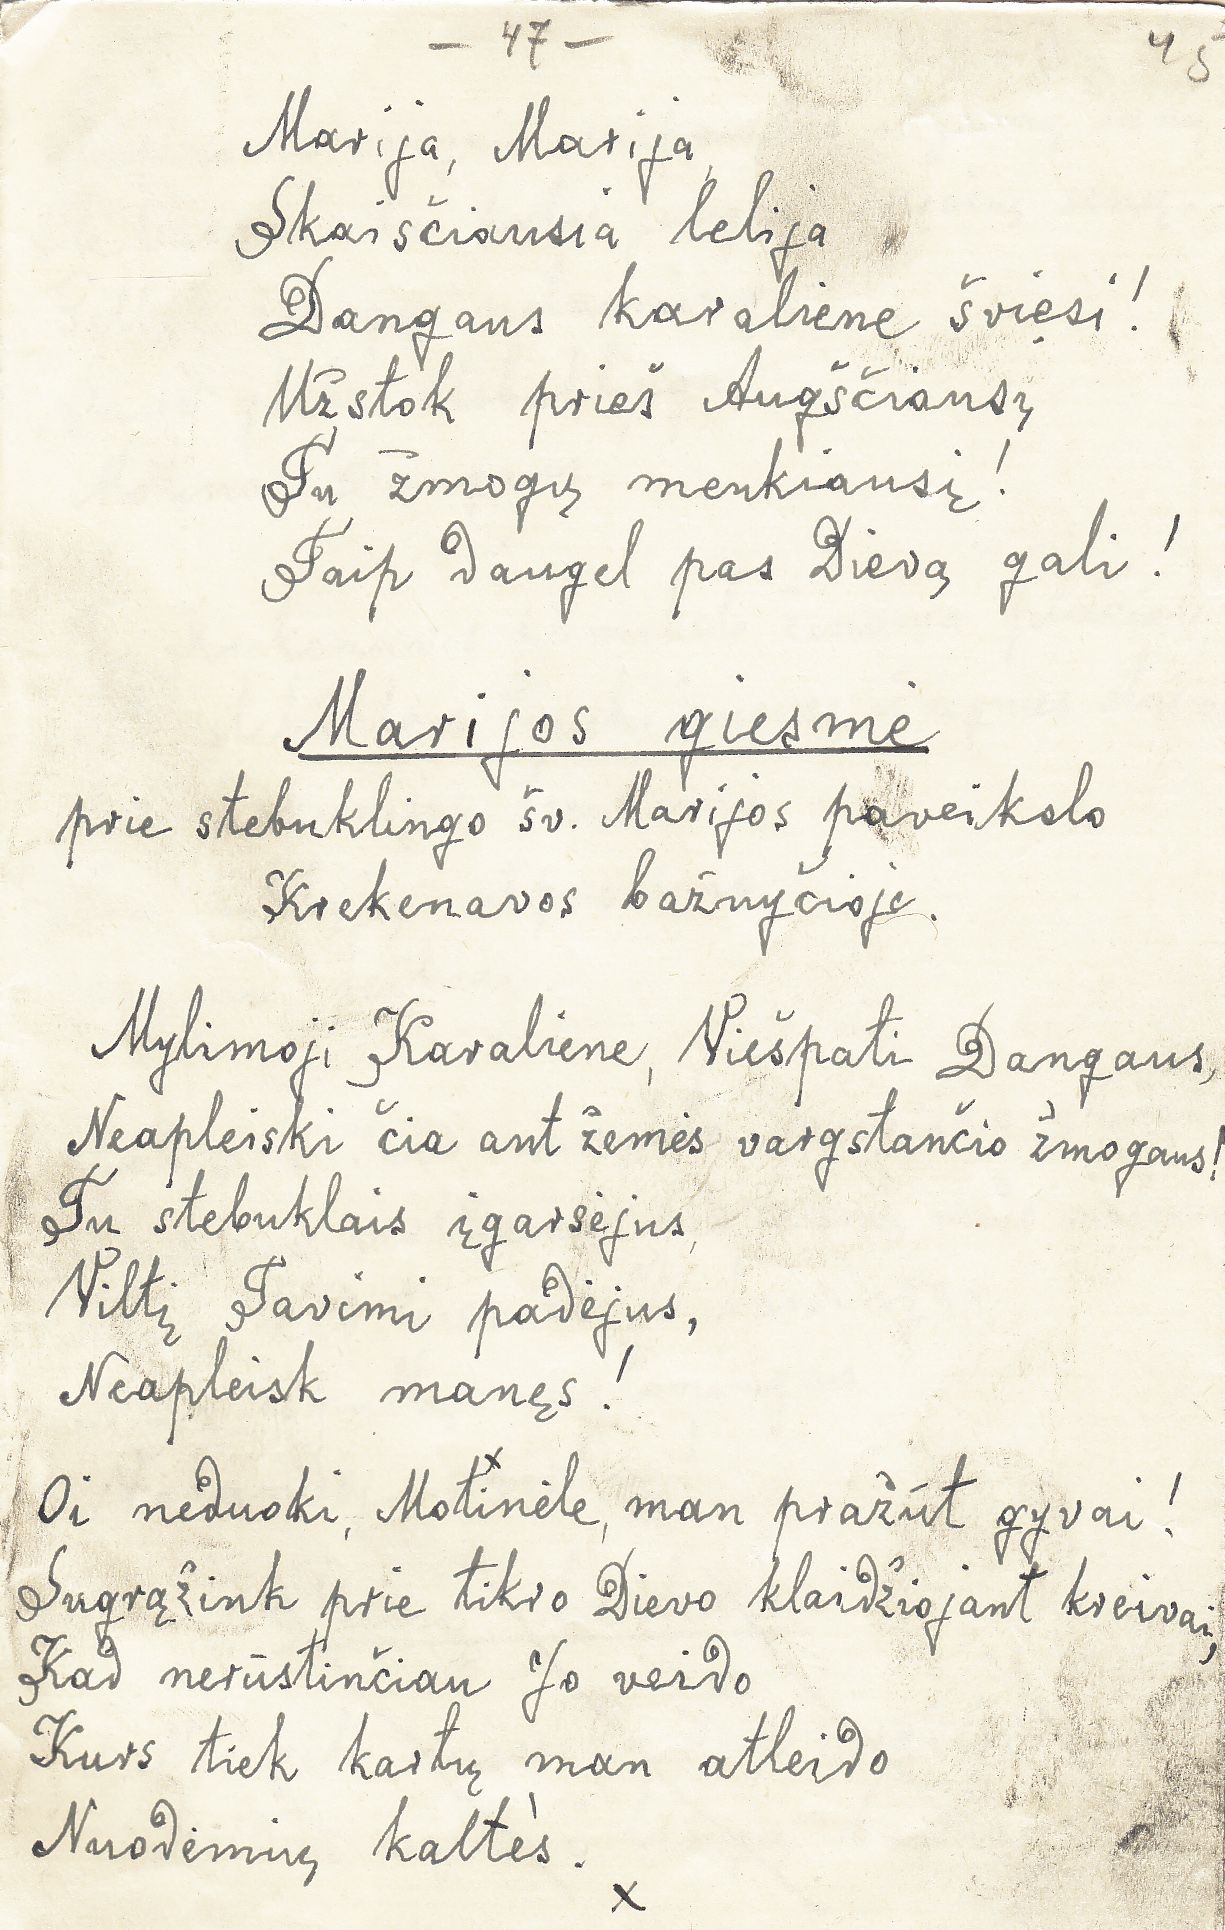 — 47 —
45
Marija, Marija,
Skaisčiausia lelija
Dangaus karaliene šviesi!
Užstok prieš Augščiausį
Tu žmogų menkiausį!
Taip daugel pas Dievą gali!
Marijos giesmė
prie stebuklingo šv. Marijos paveikslo
Krekenavos bažnyčioje.
Mylimoji Karaliene, Viešpati Dangaus,
Neapleiski čia ant žemės vargstančio žmogaus!
Tu stebuklais įgarsėjus,
Viltį Tavimi padėjus,
Neapleisk manęs!
x
Oi neduoki, Motinėle, man pražūt gyvai!
Sugrąžink prie tikro Dievo klaidžiojant kreivai,
Kad nerūstinčiau Jo veido
Kurs tiek kartų man atleido
Nuodėmių kaltės.
x